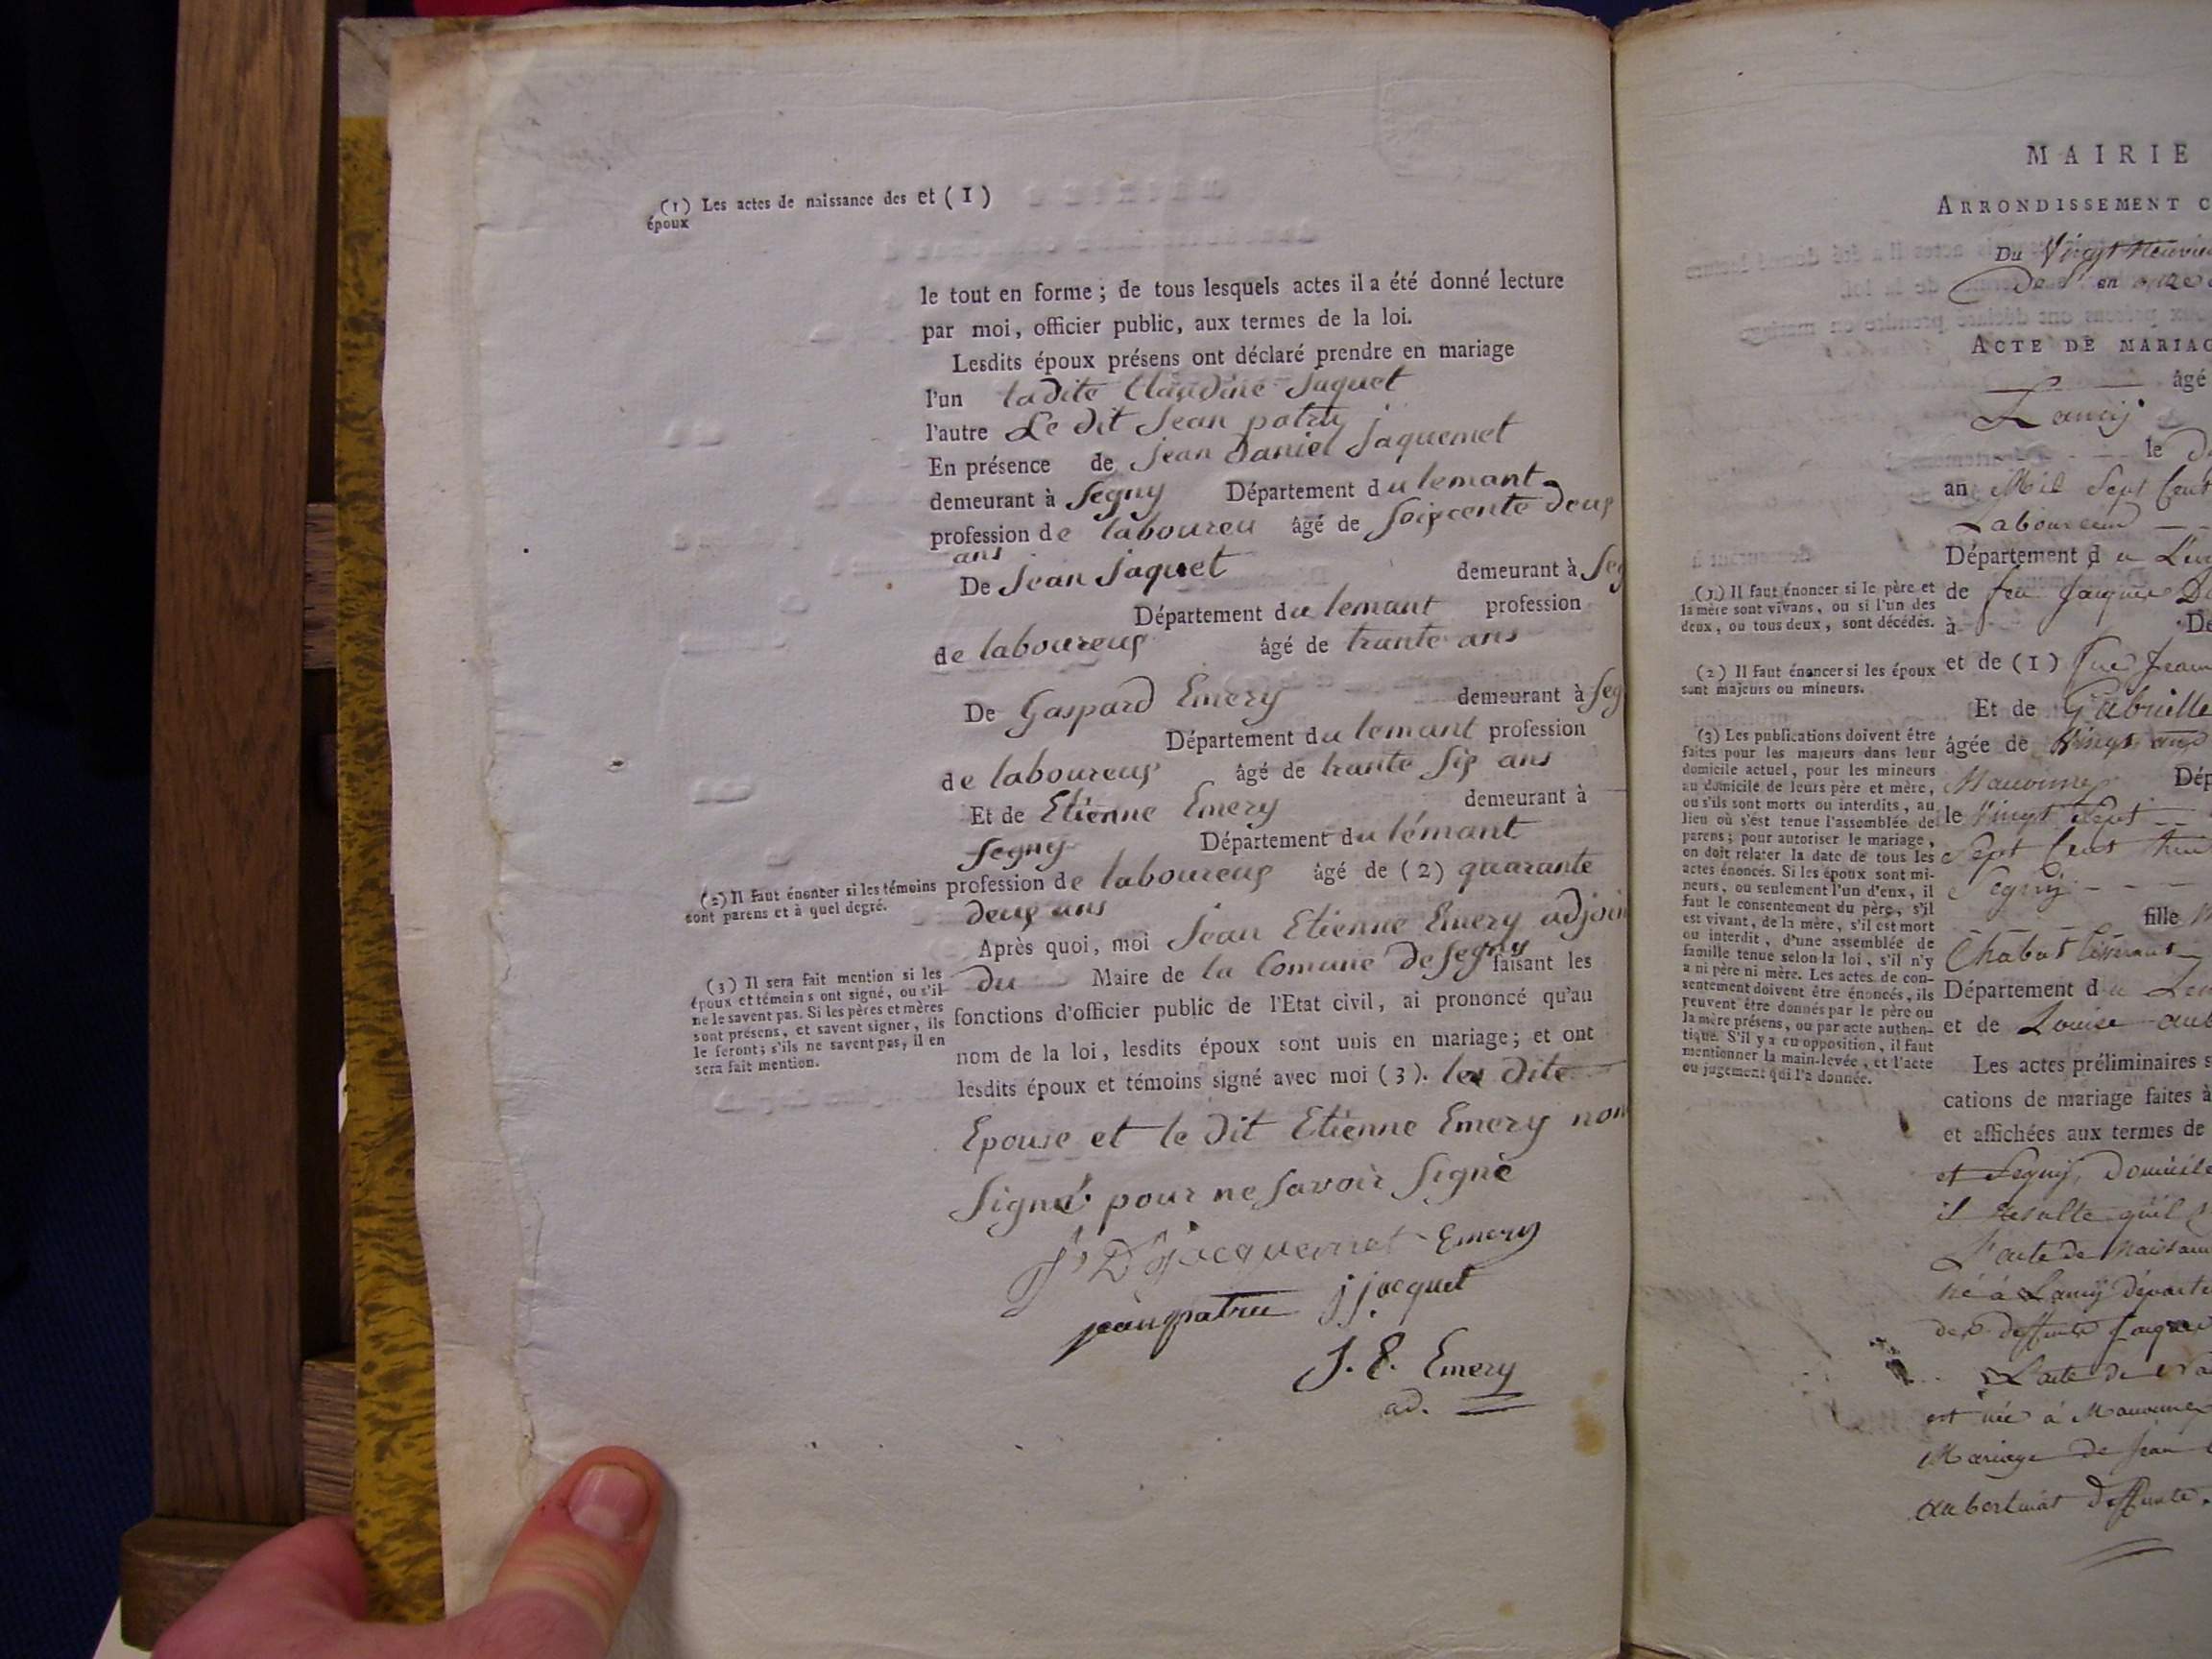 (1) Les actes de naissance des
époux
et (1)
le tout en forme ; de tous lesquels actes il a été donné lecture
par moi, officier public, aux termes de la loi.
Lesdits époux présens ont déclaré prendre en mariage
l'un ladite Claudine Jaquet
l'autre Le dit Jean patru
En présence de Jean Daniel Jaquemet
demeurant à Segny Département du lemant
profession de laboureu âgé de soixcente deux
ans
De Jean Jaquet demeurant à Seg
Département du lemant profession
de laboureux âgé de trante ans
De Gaspard Emery demeurant à Seg
Département du lemant profession
de laboureux âgé de trante six ans
Et de Etienne Emery demeurant à
Segny Département du lémant
(2) Il faut énoncer si les témoins
sont parens et à quel degré.
profession de laboureux âgé de (2) quarante
deux ans
Après quoi, moi Jean Etienne Emery adjoin
du Maire de la Comune de Segny faisant les
(3) Il sera fait mention si les
époux et témoins ont signé, ou s'il
ne le savent pas. Si les pères et mères
sont présens, et savent signer, ils
le feront; s'ils ne savent pas, il en
sera fait mention.
fonctions d'officier public de l'Etat civil, ai prononcé qu'au
nom de la loi, lesdits époux sont unis en mariage; et ont
lesdits époux et témoins signé avec moi (3). les dite
Epouse et le dit Etienne Emery non
Signé pour ne savoir signé
J D jacquemet Emery
jean patru j jacquet
J. E. Emery
ad.
MAIRIE
ARRONDISSEMENT C
Du Vingt Neuvie
en onze
ACTE DE MARIAG
âgé
Lancy
le
an Mil Sept Cent
Laboureur
Département du
(1) Il faut énoncer si le père et
la mère sont vivans, ou si l'un des
deux, ou tous deux, sont décédés.
de feu Jaques
à Dé
(2) Il faut énoncer si les époux
sont majeurs ou mineurs.
et de (1) Jean
Et de Gabrielle
(3) Les publications doivent être
faites pour les majeurs dans leur
domicile actuel, pour les mineurs
au domicile de leurs père et mère,
ou s'ils sont morts ou interdits, au
lieu où s'est tenue l'assemblée de
parens; pour autoriser le mariage,
on doit relater la date de tous les
actes énoncés. Si les époux sont mi-
neurs, ou seulement l'un d'eux, il
faut le consentement du père, s'il
est vivant, de la mère, s'il est mort
ou interdit, d'une assemblée de
famille tenue selon la loi, s'il n'y
a ni père ni mère. Les actes de con-
sentement doivent être énoncés, ils
peuvent être donnés par le père ou
la mère présens, ou par acte authen-
tique. S'il y a eu opposition, il faut
mentionner la main-levée, et l'acte
ou jugement qui l'a donnée.
âgée de Vingt
Dép
le Vingt Sept
Sept Cent
Segny
fille
Département du
et de Louise
Les actes préliminaires s
cations de mariage faites à
et affichées aux termes de
et Segny, Domicile
il Resulte qu'il
L'acte de Naissan
né à Lancy départe
L'acte de Na
est née à
Mariage de Jean